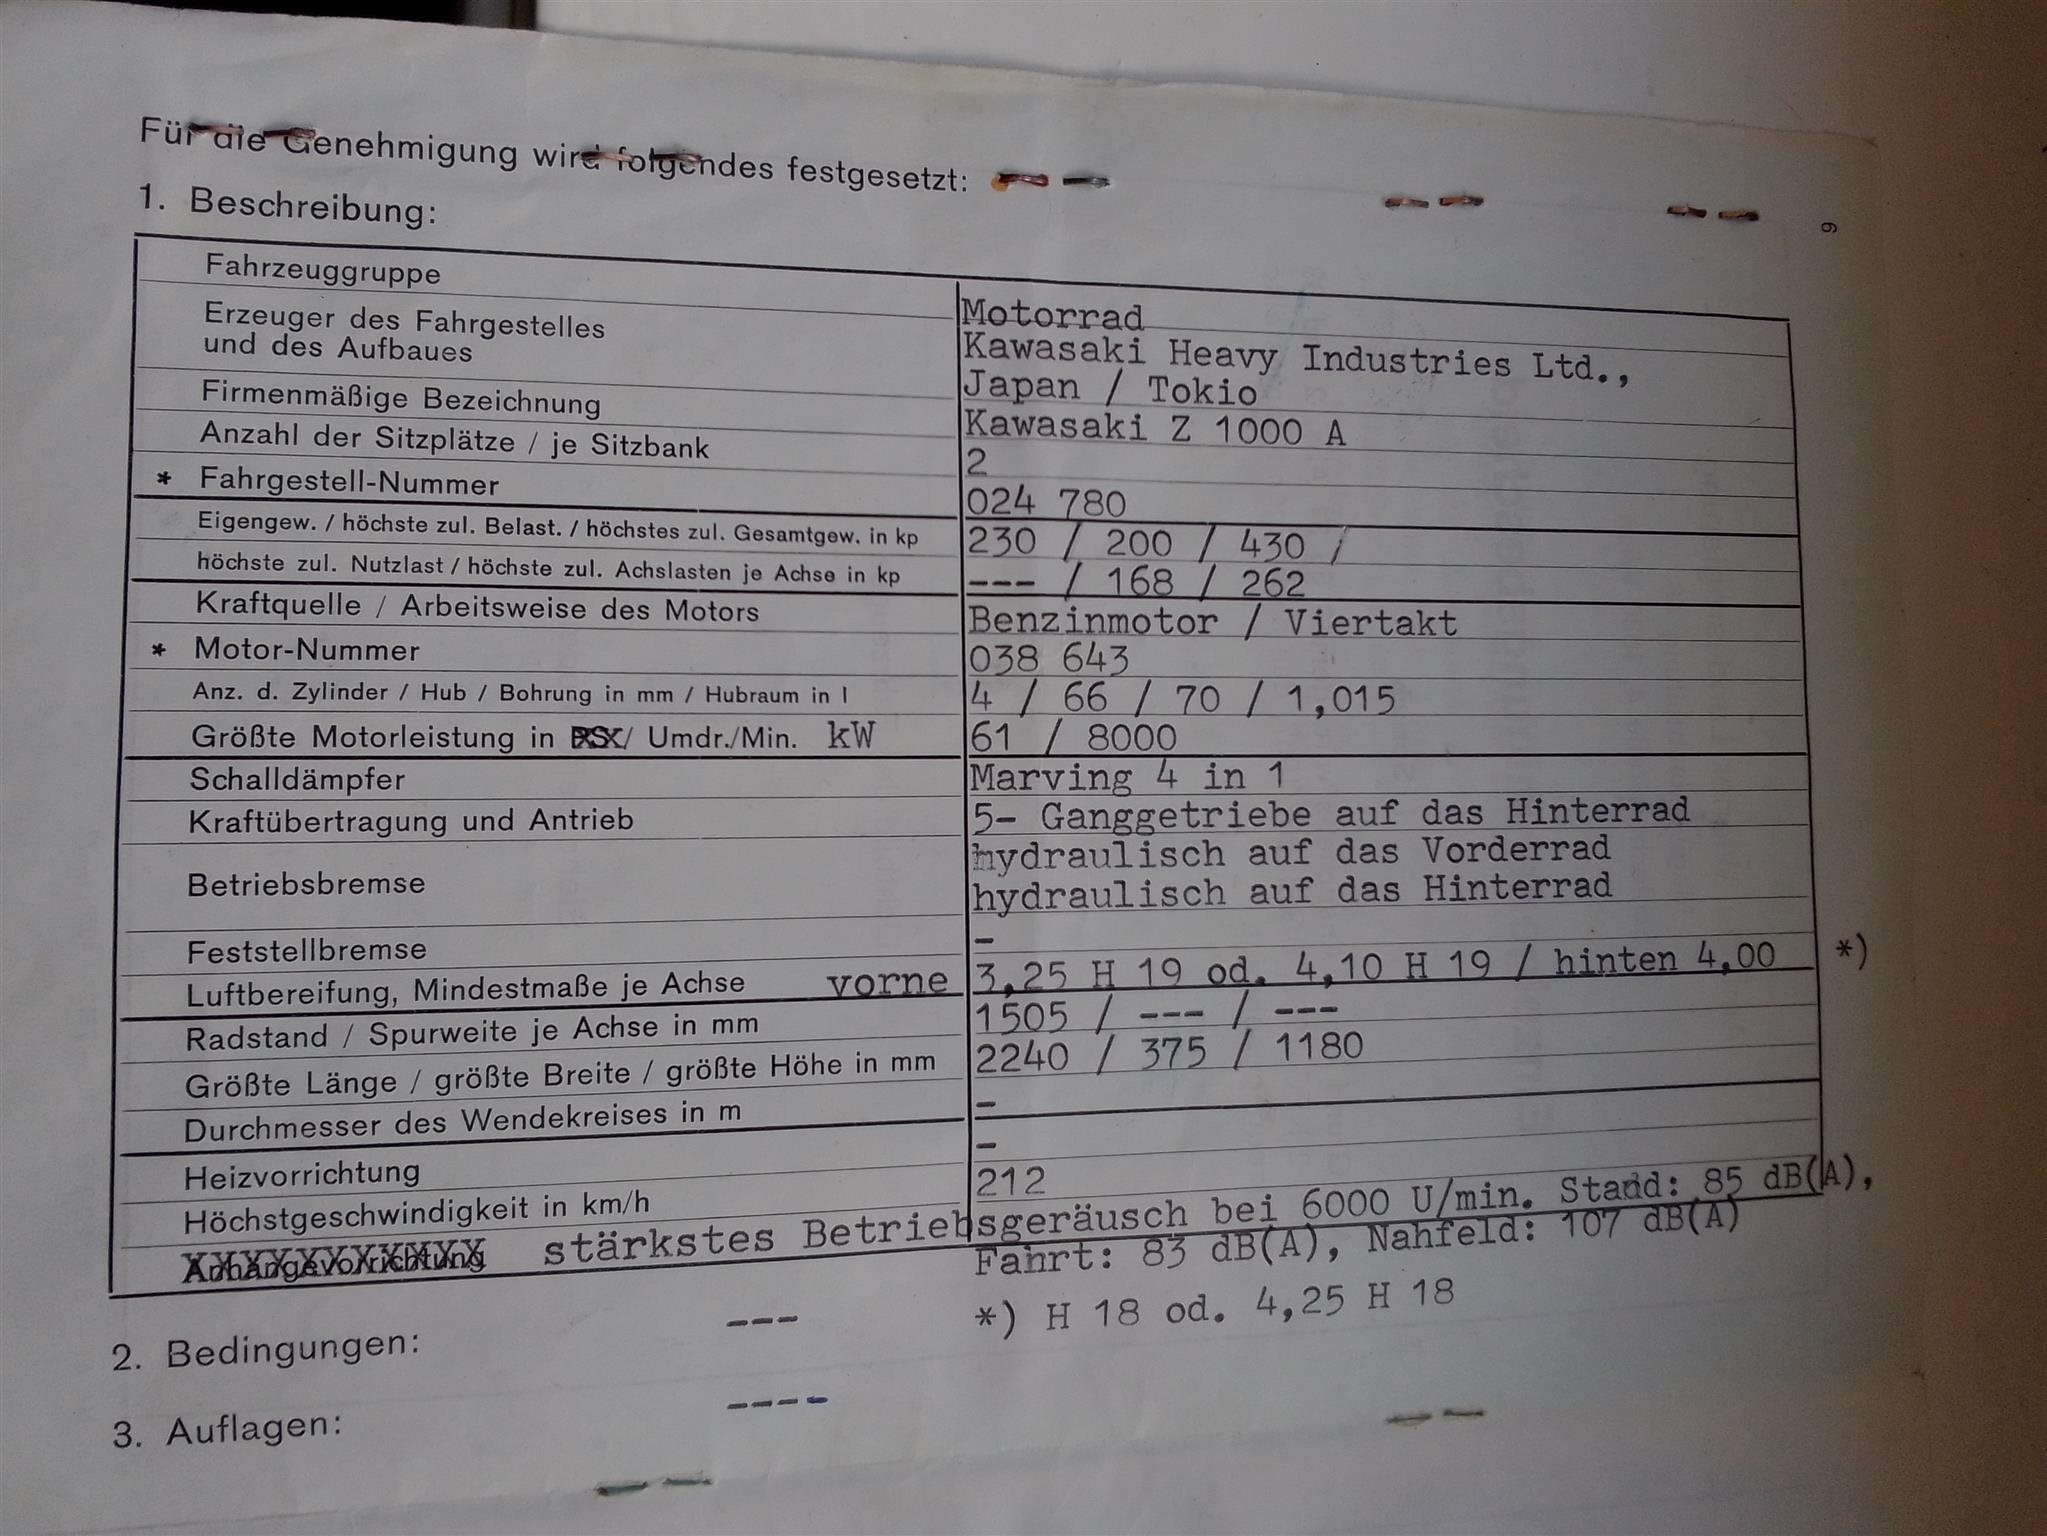 Für die Genehmigung wird folgendes festgesetzt:
1. Beschreibung:
9
Fahrzeuggruppe
Motorrad
Erzeuger des Fahrgestelles
und des Aufbaues
Kawasaki Heavy Industries Ltd.,
Japan / Tokio
Firmenmäßige Bezeichnung
Kawasaki Z 1000 A
Anzahl der Sitzplätze / je Sitzbank
2
* Fahrgestell-Nummer
024 780
Eigengew. / höchste zul. Belast. / höchstes zul. Gesamtgew. in kp
230 / 200 / 430 /
höchste zul. Nutzlast / höchste zul. Achslasten je Achse in kp
--- / 168 / 262
Kraftquelle / Arbeitsweise des Motors
Benzinmotor / Viertakt
* Motor-Nummer
038 643
Anz. d. Zylinder / Hub / Bohrung in mm / Hubraum in l
4 / 66 / 70 / 1,015
Größte Motorleistung in PS / Umdr./Min. kW
61 / 8000
Schalldämpfer
Marving 4 in 1
Kraftübertragung und Antrieb
5- Ganggetriebe auf das Hinterrad
Betriebsbremse
hydraulisch auf das Vorderrad
hydraulisch auf das Hinterrad
Feststellbremse
-
Luftbereifung, Mindestmaße je Achse vorne
3,25 H 19 od. 4,10 H 19 / hinten 4,00 *)
Radstand / Spurweite je Achse in mm
1505 / --- / ---
Größte Länge / größte Breite / größte Höhe in mm
2240 / 375 / 1180
Durchmesser des Wendekreises in m
-
Heizvorrichtung
-
Höchstgeschwindigkeit in km/h
212
Anhängevorrichtung stärkstes Betriebsgeräusch bei 6000 U/min. Stand: 85 dB(A),
Fahrt: 83 dB(A), Nahfeld: 107 dB(A)
*) H 18 od. 4,25 H 18
2. Bedingungen: ---
3. Auflagen: ----